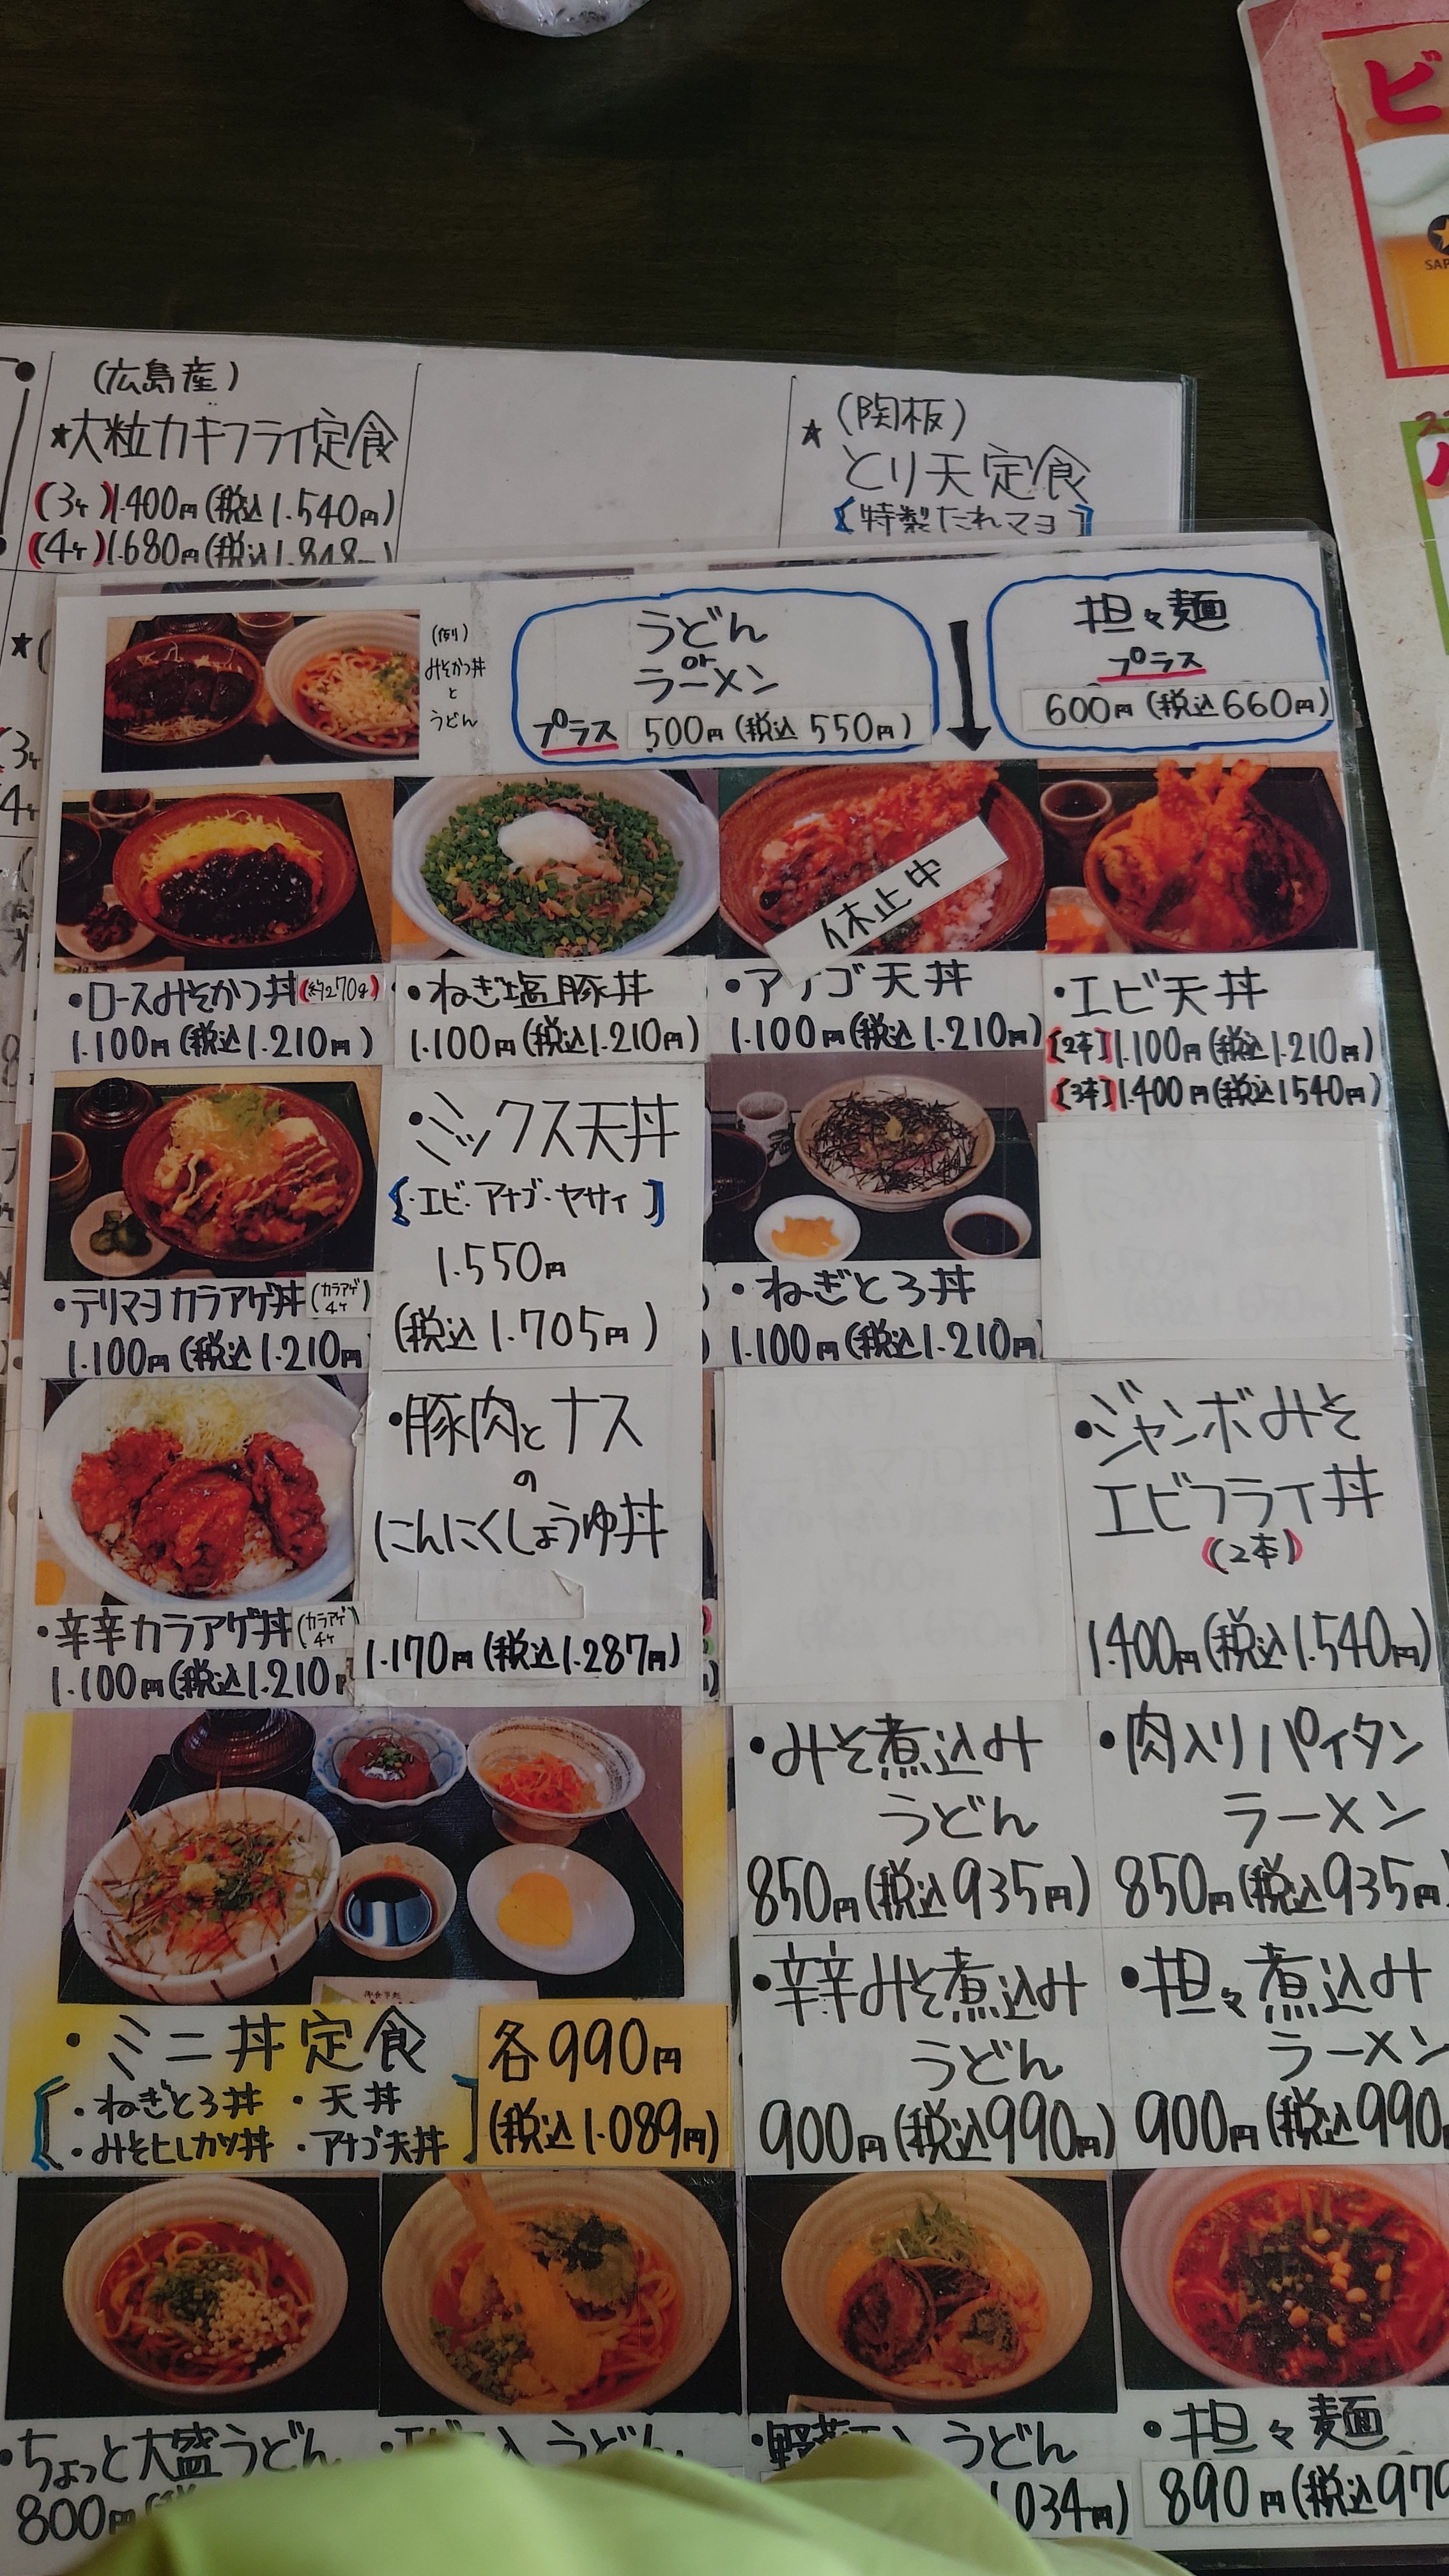 (広島産)
★大粒カキフライ定食
(3ヶ)1.400円(税込1.540円)
(4ヶ)1.680円(税込1.848
★(関板)
とり天定食
【特製たれマヨ】
ビ
(例)
みそかつ丼
と
うどん
うどん
or
ラーメン
プラス 500円(税込550円)
担々麺
プラス
600円(税込660円)
休止中
・ロースみそかつ丼(約270g)
1.100円(税込1.210円)
・ねぎ塩豚丼
1.100円(税込1.210円)
・アナゴ天丼
1.100円(税込1.210円)
・エビ天丼
【2本】1.100円(税込1.210円)
【3本】1.400円(税込1540円)
・テリマヨカラアゲ丼(カラアゲ4ヶ)
1.100円(税込1.210円
・ミックス天丼
【・エビ・アナゴ・ヤサイ】
1.550円
(税込1.705円)
・ねぎとろ丼
1.100円(税込1.210円
・辛辛カラアゲ丼(カラアゲ4ヶ)
1.100円(税込1.210円
・豚肉とナス
の
にんにくしょうゆ丼
1.170円(税込1.287円)
・ジャンボみそ
エビフライ丼
(2本)
1.400円(税込1.540円)
・ミニ丼定食
【・ねぎとろ丼 ・天丼
・みそヒレカツ丼 ・アナゴ天丼】
各990円
(税込1.089円)
・みそ煮込み
うどん
850円(税込935円)
・肉入りパイタン
ラーメン
850円(税込935円
・辛辛みそ煮込み
うどん
900円(税込990円)
・担々煮込み
ラーメン
900円(税込990
・ちょっと大盛うどん
800円
うどん
うどん
034円)
・担々麺
890円(税込979